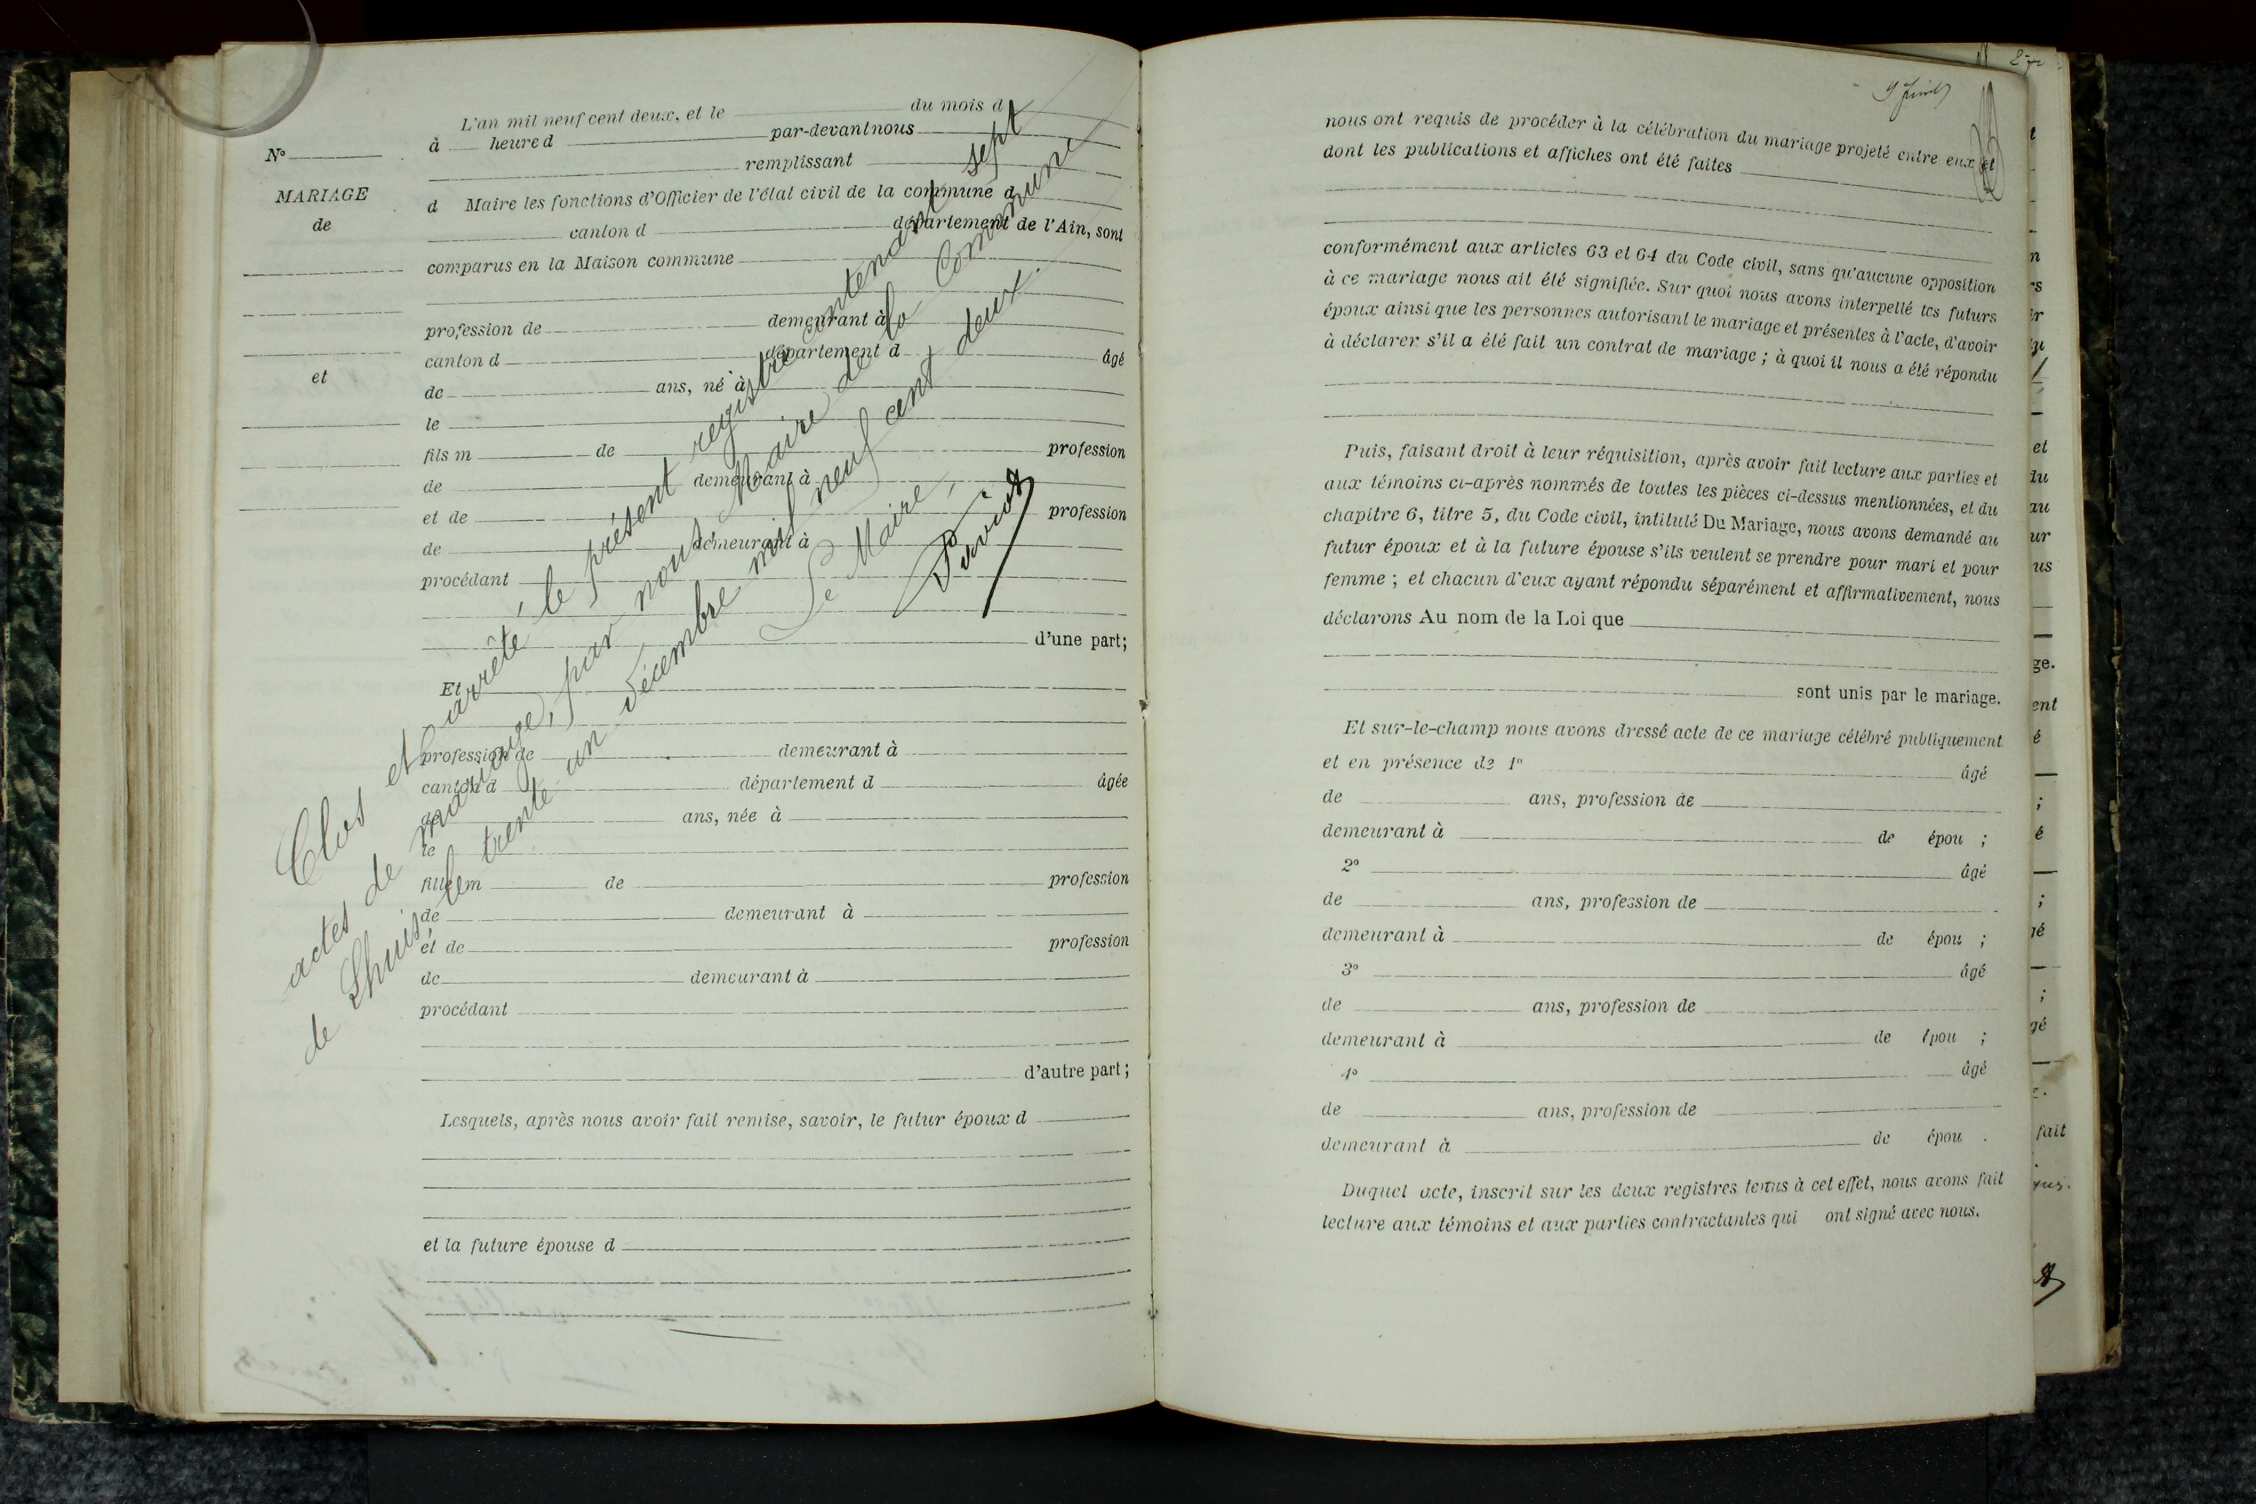 L'an mil neuf cent deux, et le du mois d
à heure d par-devant nous
remplissant
d Maire les fonctions d'Officier de l'état civil de la commune d
canton d département de l'Ain, sont
comparus en la Maison commune
profession de demeurant à
canton d département d âgé
de ans, né à
le
fils m de profession
de demeurant à
et de profession
de demeurant à
procédant
d'une part;
Et
profession de demeurant à
canton d département d âgée
de ans, née à
le
fille m de profession
de demeurant à
et de profession
de demeurant à
procédant
d'autre part;
Lesquels, après nous avoir fait remise, savoir, le futur époux d
et la future épouse d
No
MARIAGE
de
et
Clos et arrêté le présent registre contenant sept
actes de mariage, par nous, Maire de la Commune
de Lhuis le trente-un décembre mil neuf cent deux.
Le Maire,
nous ont requis de procéder à la célébration du mariage projeté entre eux et
dont les publications et affiches ont été faites
conformément aux articles 63 et 64 du Code civil, sans qu'aucune opposition
à ce mariage nous ait été signifiée. Sur quoi nous avons interpellé les futurs
époux ainsi que les personnes autorisant le mariage et présentes à l'acte, d'avoir
à déclarer s'il a été fait un contrat de mariage; à quoi il nous a été répondu
Puis, faisant droit à leur réquisition, après avoir fait lecture aux parties et
aux témoins ci-après nommés de toutes les pièces ci-dessus mentionnées, et du
chapitre 6, titre 5, du Code civil, intitulé Du Mariage, nous avons demandé au
futur époux et à la future épouse s'ils veulent se prendre pour mari et pour
femme; et chacun d'eux ayant répondu séparément et affirmativement, nous
déclarons Au nom de la Loi que
sont unis par le mariage.
Et sur-le-champ nous avons dressé acte de ce mariage célébré publiquement
et en présence de 1o âgé
de ans, profession de
demeurant à de épou ;
2o âgé
de ans, profession de
demeurant à de épou ;
3o âgé
de ans, profession de
demeurant à de épou ;
4o âgé
de ans, profession de
demeurant à de épou .
Duquel acte, inscrit sur les deux registres tenus à cet effet, nous avons fait
lecture aux témoins et aux parties contractantes qui ont signé avec nous.